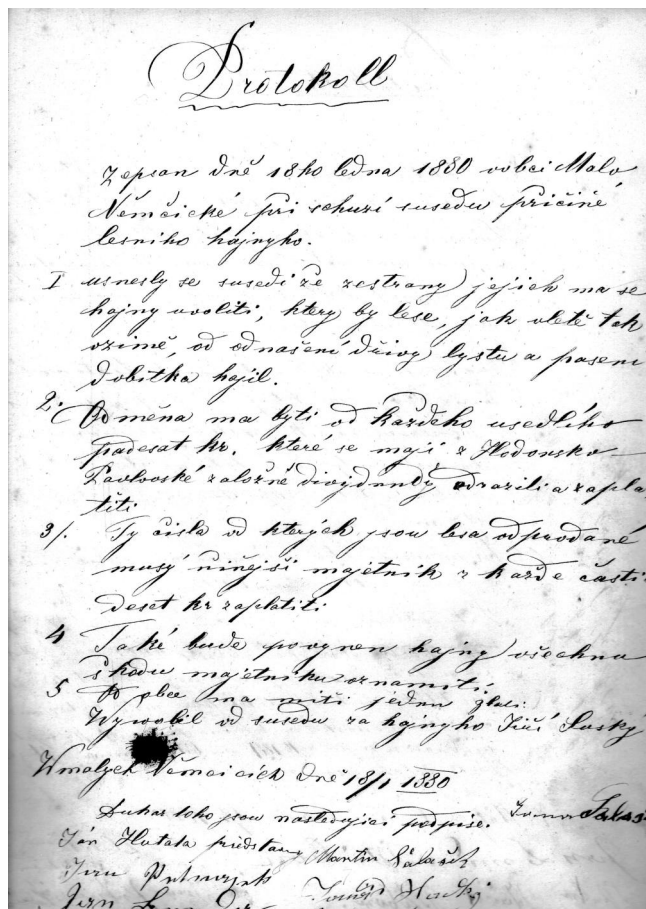 Protokoll
Zepsan dně 18ho ledna 1880 vobci Malo
Němčické při schuzi susedu přičině
lesniho hajnyho.
I usnesly se susedi že zestrany jejich ma se
hajny uvoliti, ktery by lese, jak vletě tak
vzimě, od odnašeni dřivy lystu a paseni
dobitka hajil.
2. Odměna ma byti od každeho usedliho
padesat kr. které se maji z Hodonsko
Pavlovské založné divydendy odrazili a zapla
titi
3/. Ty čisla od kterých jsou lesa odprodané
musý niňejši majetnik z každe časti
deset kr zaplatiti
4 Také bude povynen hajny všechnu
škodu majetniku oznamiti.
5 obce ma miti jednu
Wywolil od susedu za hajnyho Jiři
Wmalych Němcicich dně 18/1 1880
Dukaz toho jsou nasledujici podpise.
Ján Hutala
Martin
Jan
Tomaš